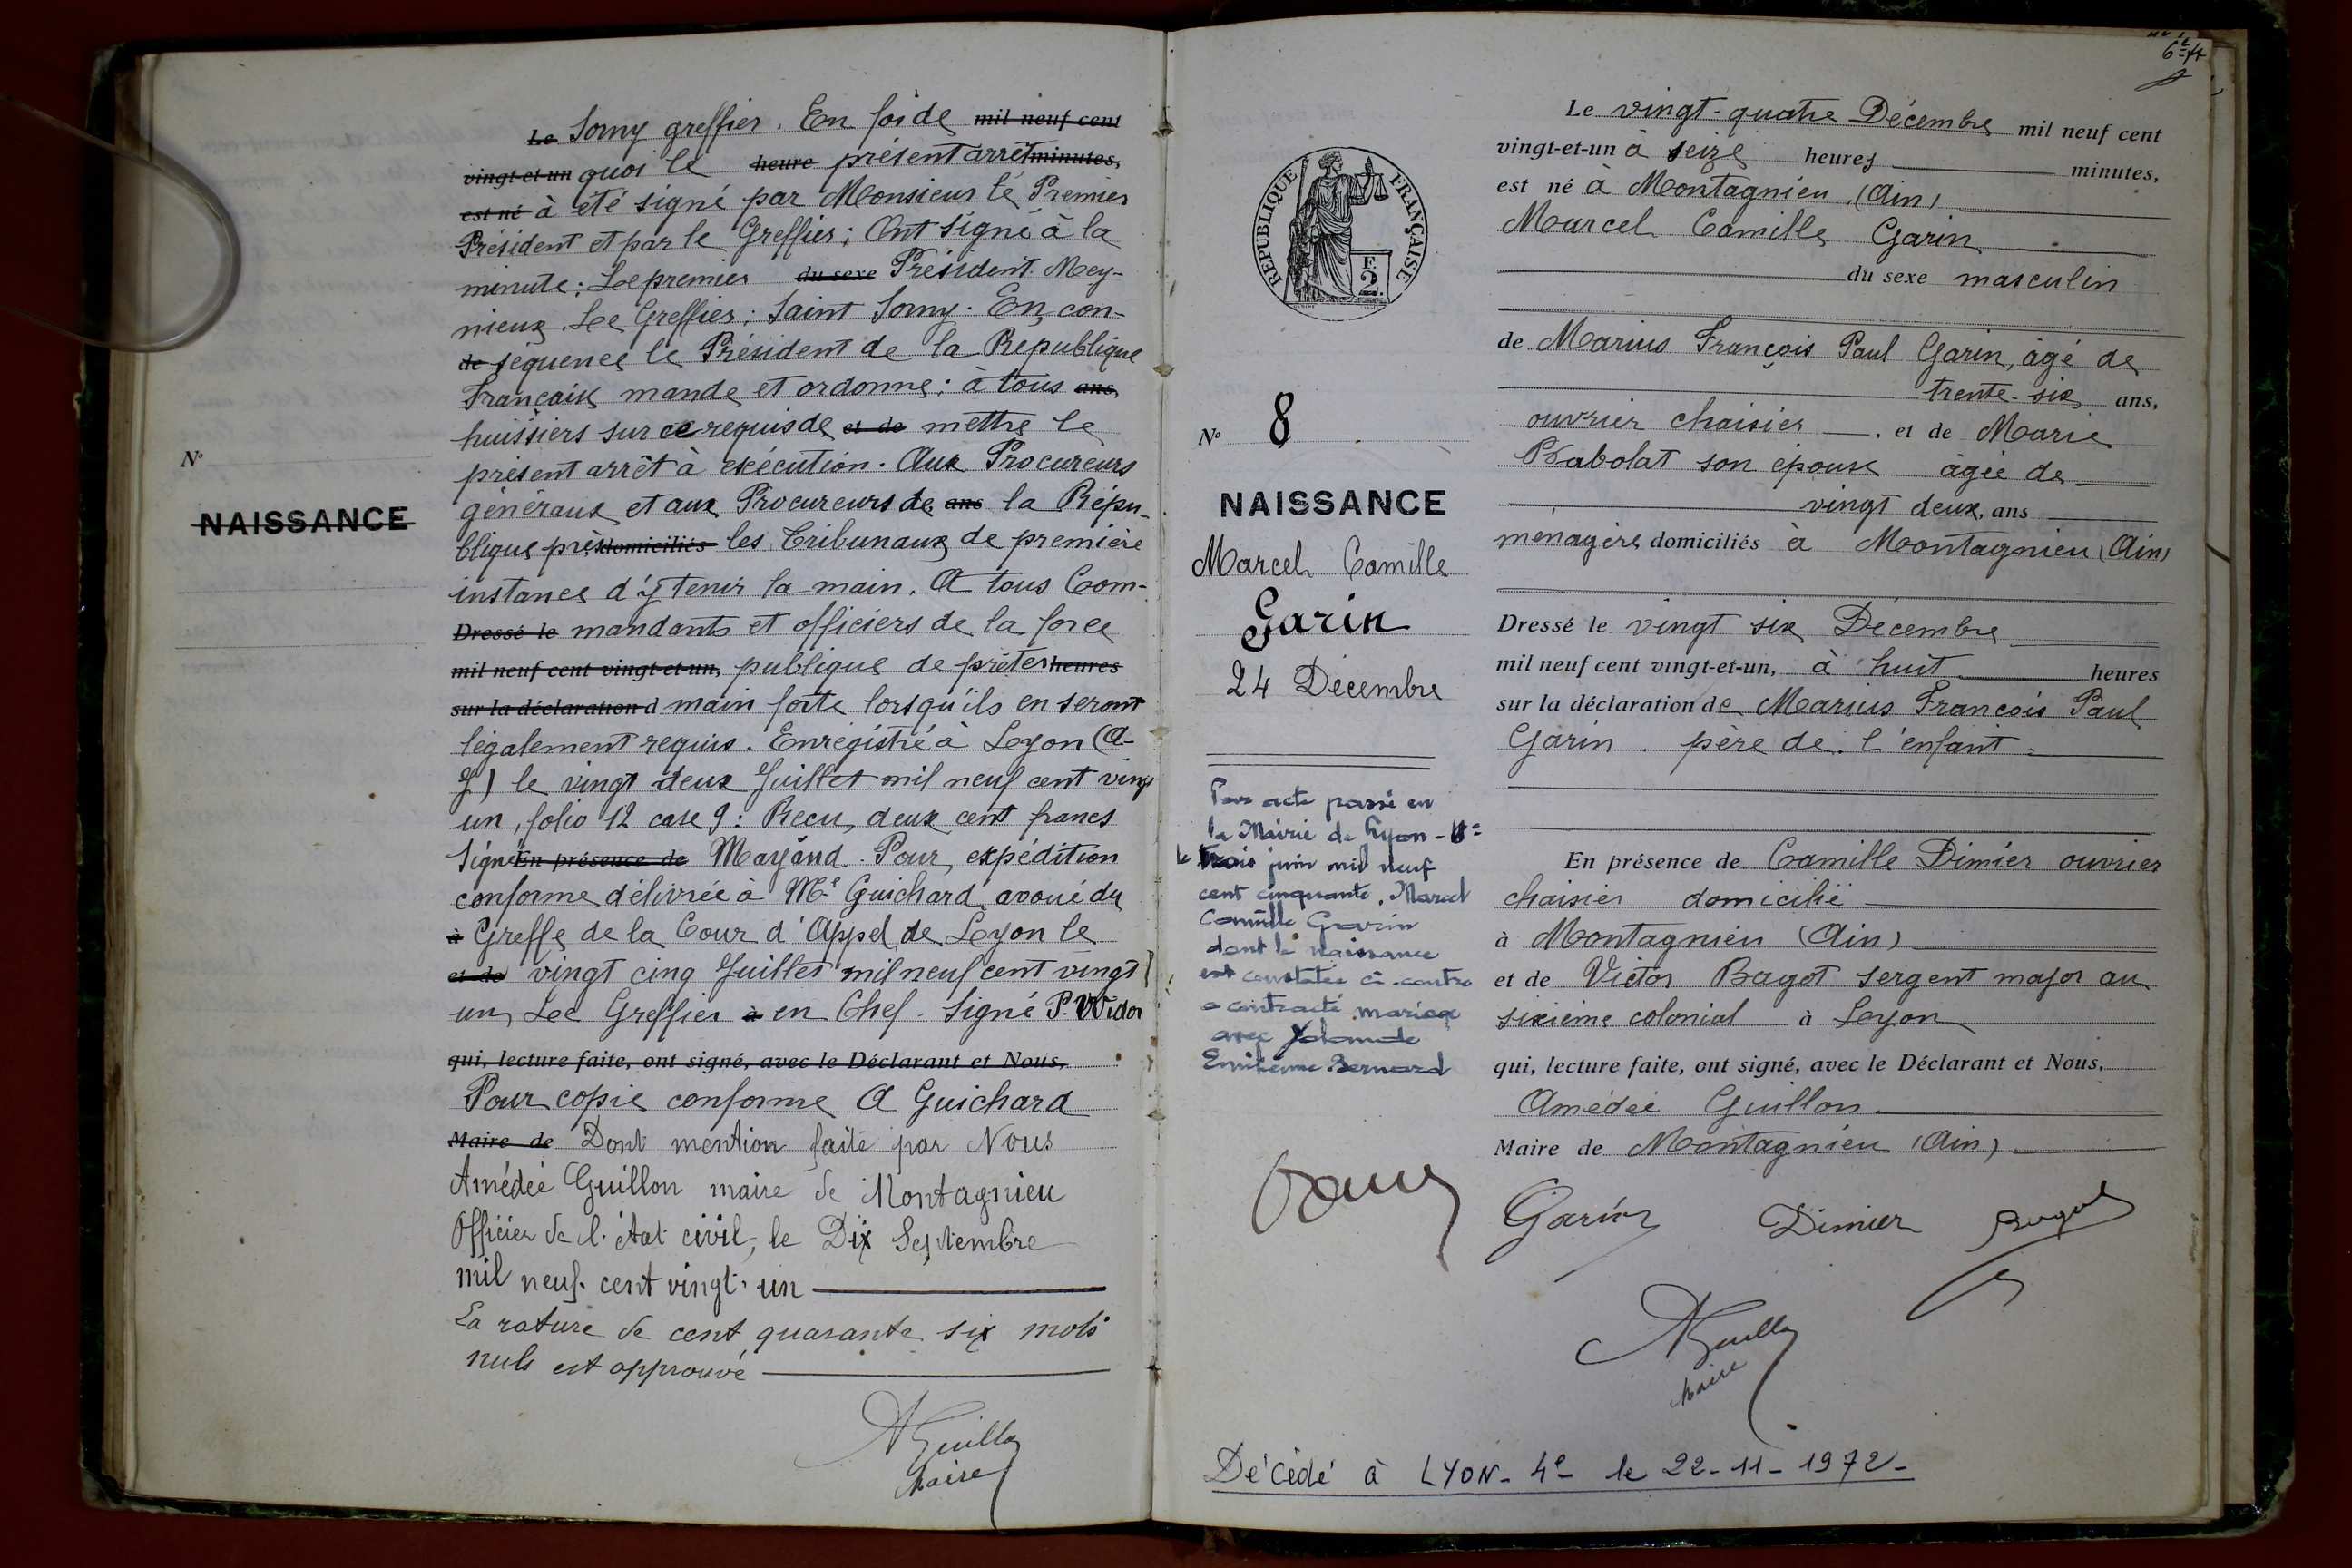 Le Somy greffier. En foi de mil neuf cent
vingt-et-un quoi le heure présent arrêt minutes,
est né à été signé par Monsieur le Premier
Président et par le Greffier ; Ont signé à la
minute : Le premier du sexe Président Mey-
nieux. Le Greffier : Saint Somy. En con-
de séquence le Président de la République
Française mande et ordonne : à tous ans
huissiers sur ce requis de et de mettre le
présent arrêt à exécution. Aux Procureurs
généraux et aux Procureurs de ans la Répu-
blique près domiciliés les Tribunaux de première
instance d'y tenir la main. A tous Com-
Dressé le mandants et officiers de la force
mil neuf cent vingt-et-un, publique de prêter heures
sur la déclaration d main forte lorsqu'ils en seront
légalement requis. Enregistré à Lyon (A-
J) le vingt deux Juillet mil neuf cent vingt
un, folio 12 case 9 : Recu, deux cent francs
Signé En présence de Mayand. Pour expédition
conforme délivrée à Me Guichard avoué du
à Greffe de la Cour d'Appel de Lyon le
et de vingt cinq Juillet mil neuf cent vingt
un Le Greffier à en Chef. Signé P. Widor
qui, lecture faite, ont signé, avec le Déclarant et Nous,
Pour copie conforme A Guichard
Maire de Dont mention faite par Nous
Amédée Guillon maire de Montagnieu
Officier de l'état civil, le Dix Septembre
mil neuf cent vingt un
La rature de cent quarante six mots
nuls est approuvé
AGuillon
Maire
No
NAISSANCE
6e ft
RÉPUBLIQUE FRANÇAISE
F.
2.
No 8
NAISSANCE
Marcel Camille
Garin
24 Décembre
Par acte passé en
la Mairie de Lyon -
le trois juin mil neuf
cent cinquante, Marcel
Camille Garin
dont la naissance
est constatée ci-contre
a contracté mariage
avec Yolande
Emilienne Bernard
Le vingt-quatre Décembre mil neuf cent
vingt-et-un à seize heures minutes,
est né à Montagnieu (Ain)
Marcel Camille Garin
du sexe masculin
de Marius François Paul Garin, âgé de
trente-six ans,
ouvrier chaisier, et de Marie
Rabolat son épouse âgée de
vingt deux ans
ménagère domiciliés à Montagnieu (Ain)
Dressé le vingt six Décembre
mil neuf cent vingt-et-un, à huit heures
sur la déclaration de Marius François Paul
Garin. père de l'enfant.
En présence de Camille Dimier ouvrier
chaisier domicilié
à Montagnieu (Ain)
et de Victor Bagot sergent major au
sixième colonial à Lyon
qui, lecture faite, ont signé, avec le Déclarant et Nous,
Amédée Guillon.
Maire de Montagnieu (Ain)
Garin Dimier Bagot
AGuillon
Maire
Décédé à LYON-4e le 22-11-1972-